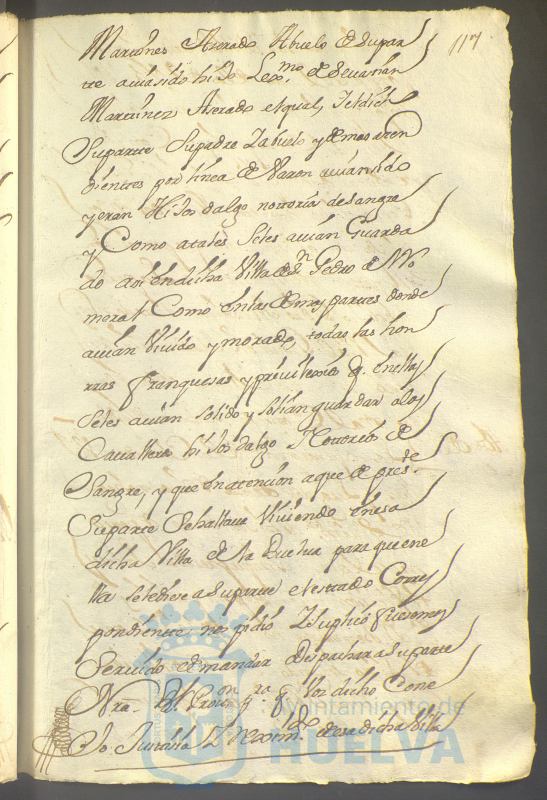 117
Martines Aserado Abuelo de Supar
te auia sido hijo Lexmo. de Seuastian
Martinez Aserado el qual, y el dicho
Suparte Supadre y abuelo y demas asen
dientes por linea de Varon auian sido
y eran Hijos dalgo notorios de sangre
y Como atales Seles auian Guarda
do asi en dicha Villa de Dn. Pedro de No
mera Como en las demas partes donde
auian Viuido y morado, todas las hon
rras franquesas y preuilexios q. en ellas
Seles auian solido y solian guardar alos
Caualleros hijos dalgo Notorios de
Sangre, y que en atencion aque de preste.
Suparte Sehallaua Viuiendo en esa
dicha Villa de la Huelua para que en e
lla sele diese a Suparte el estado Corres
pondiente nos pidio y suplico fuesemos
Seruido de mandar despachar a Suparte
Nra. Rl. Prouon. para q. Vos dicho Conse
Jo Justicia y Reximto. de esa dicha Villa
Ayuntamiento de
HUELVA